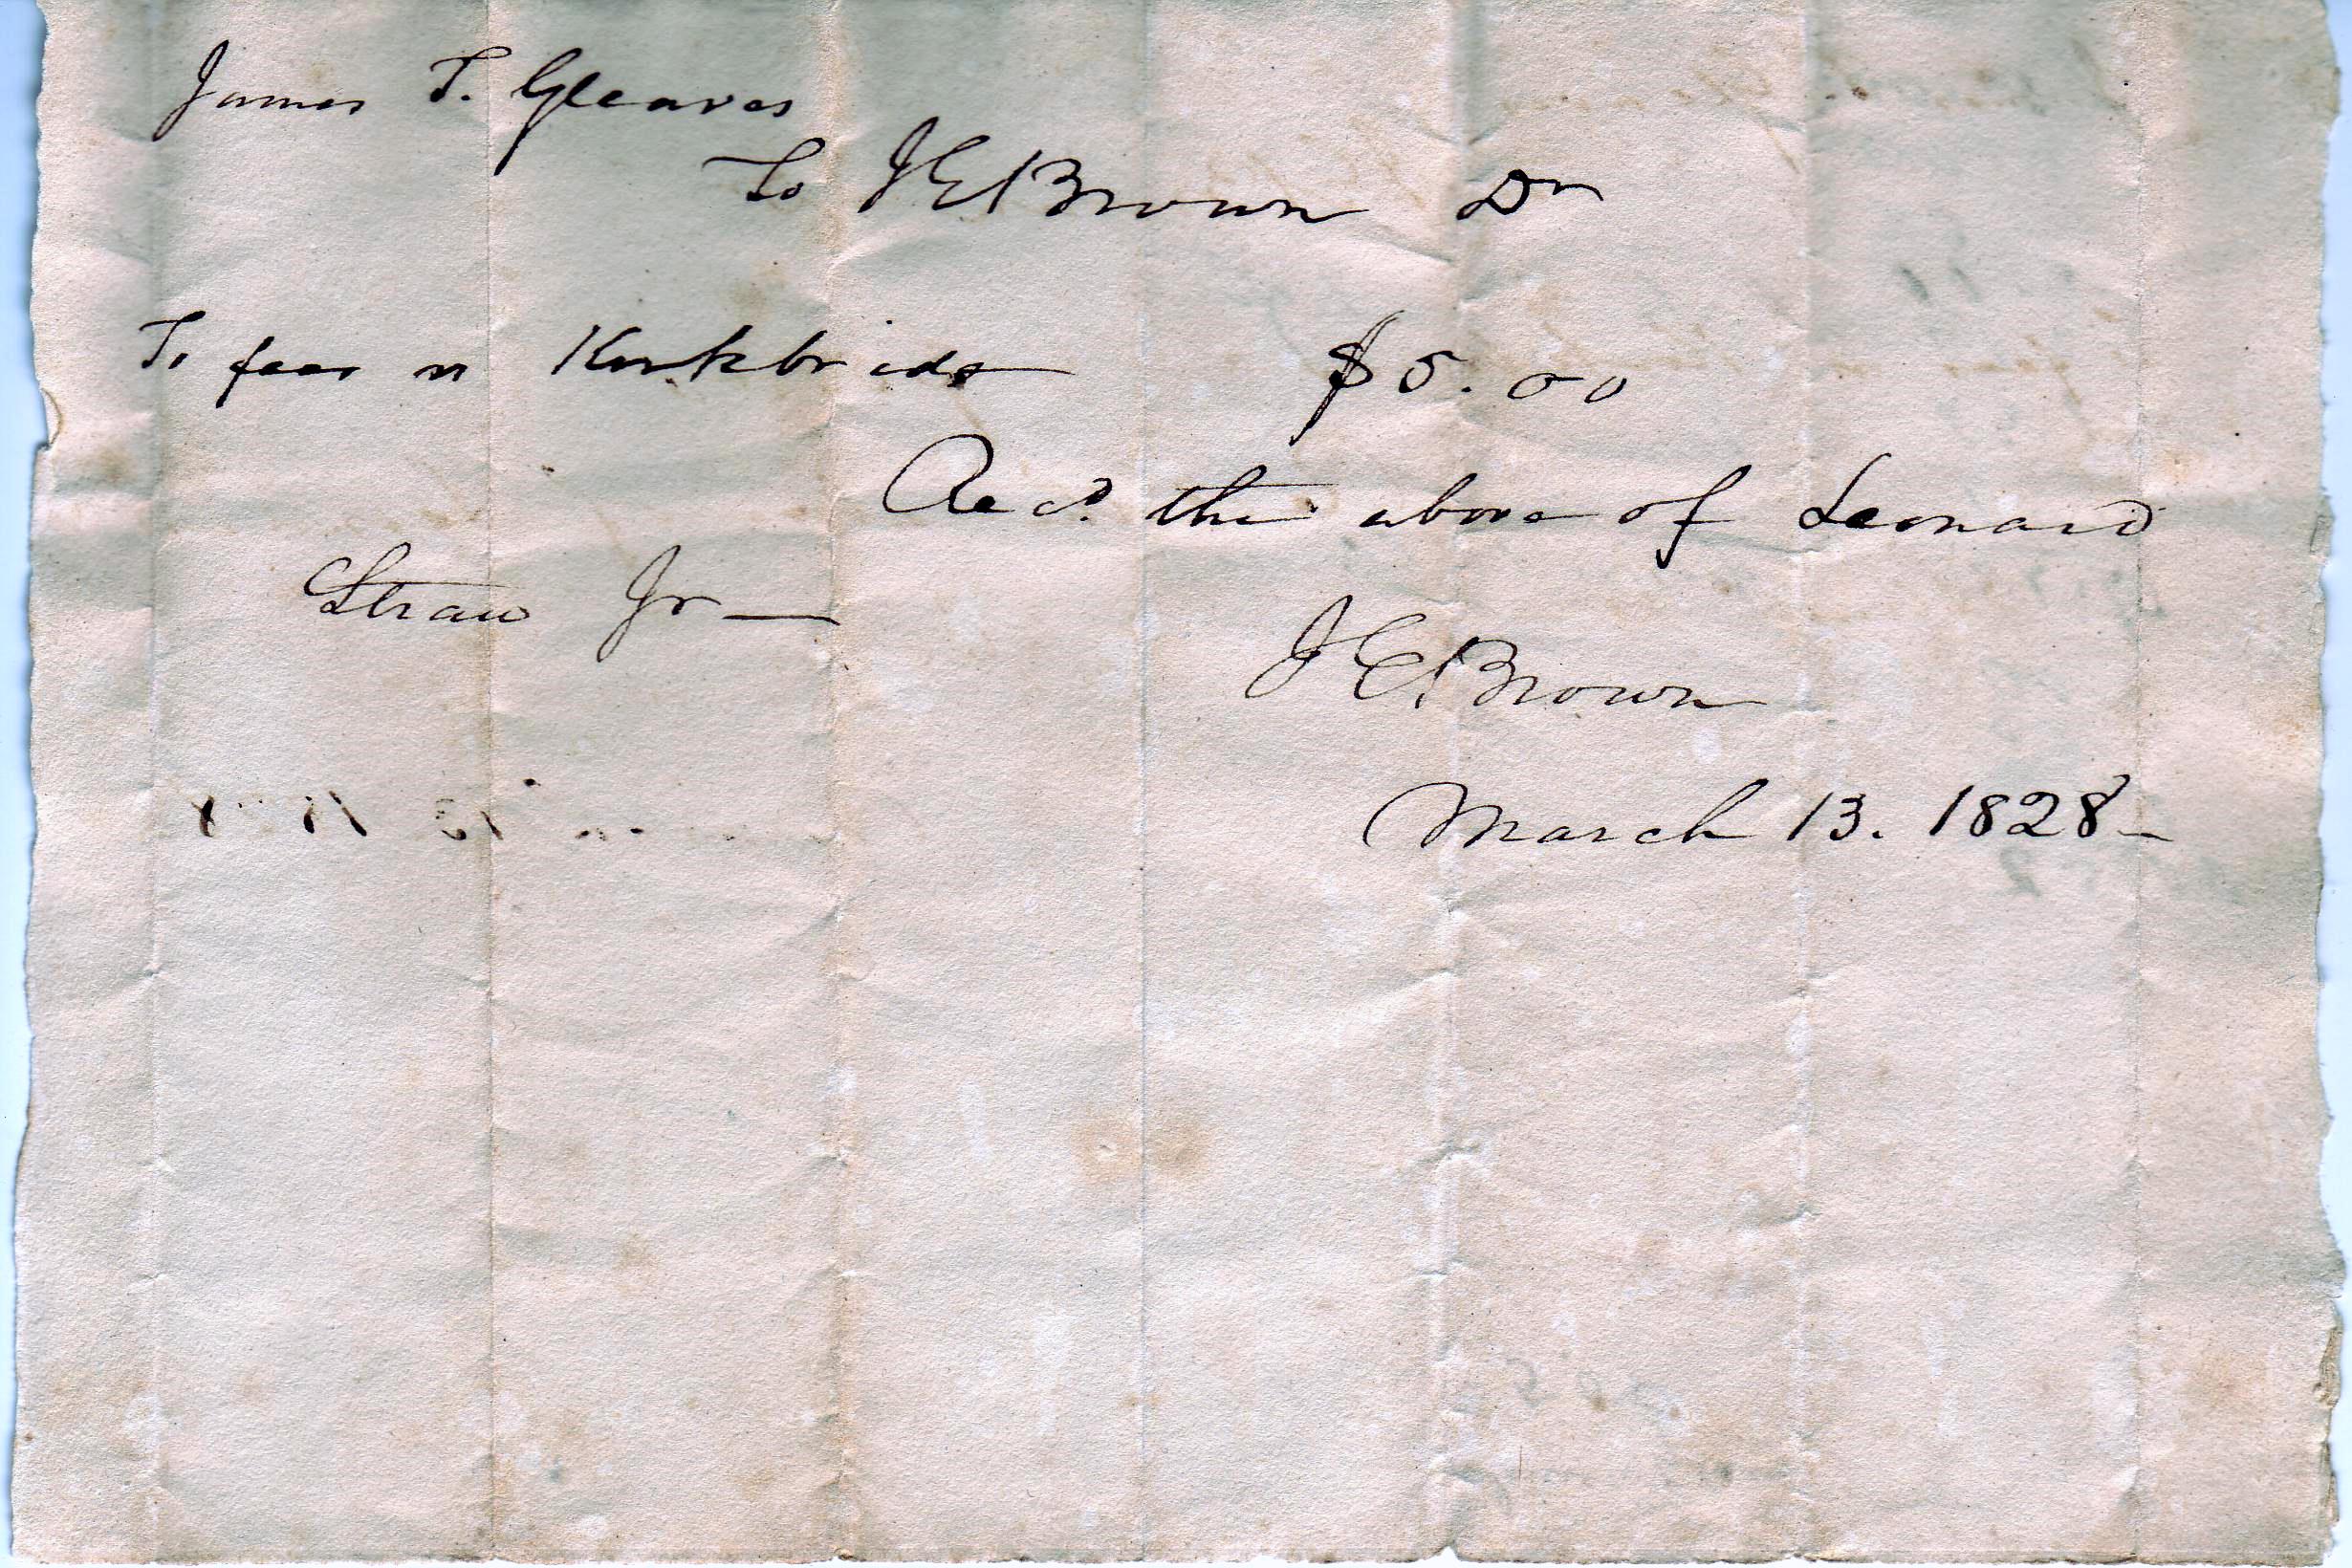 James T. Gleaves
To J E Brown Dr
To fees vs Kirkbride $5.00
Recd. the above of Leonard
Straw Jr —
J E Brown
March 13. 1828 –